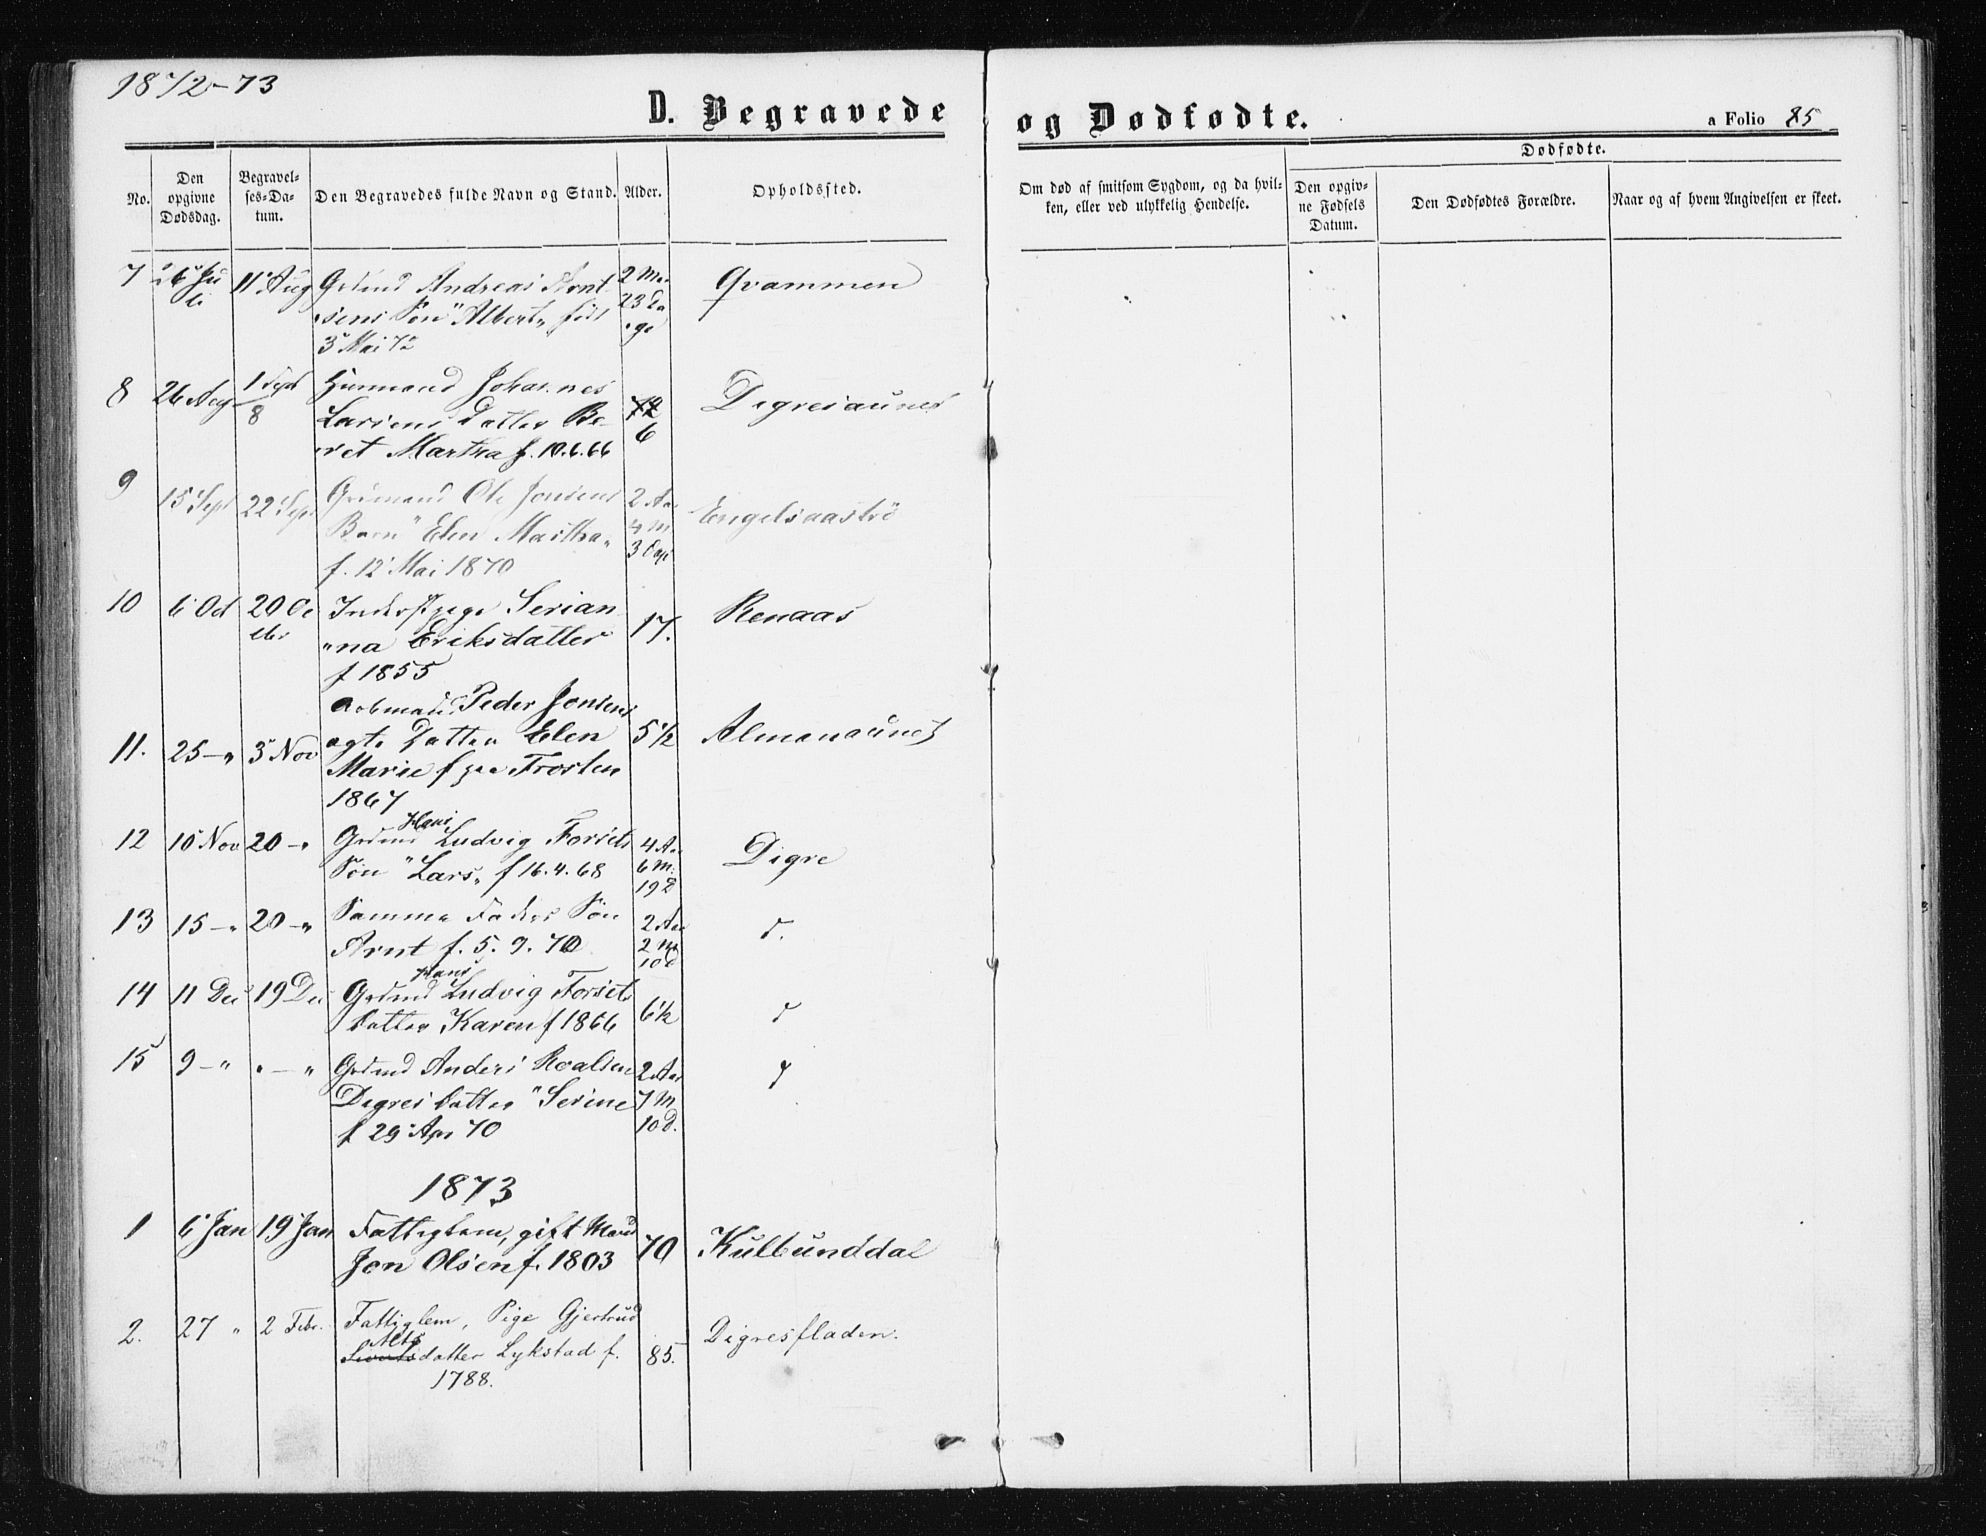 1872-73
D. Begravede og Dødfødte.
a Folio 85
No.
Den opgivne Dødsdag.
Begravel-ses-Da-tum.
Den Begravedes fulde Navn og Stand.
Alder.
Opholdssted.
Om død af smitsom Sygdom, og da hvil-ken, eller ved ulykkelig Hendelse.
Dødfødte.
Den opgiv-ne Fødsels Datum.
Den Dødfødtes Forældre.
Naar og af hvem Angivelsen er skeet.
7 26 Ju 11 Aug Grdmd Andreas Arnt 2 Ma Qvammen
li sens Søn "Albert" född 23 Da
3 Mai 72 ge
8 26 Aug 1 Sept Huusmand Johannes Digresaunet
8 Larsens Datter Be 6
ret Martha f. 10.6.66
9 15 Sept 22 Sept Grdmand Ole Jonsens 2 Aar Engelsaaströ
Barn "Elen Martha" 4 M
f. 12 Mai 1870 3 Dage
10 6 Oct 20 Oc Inderstpige Serian 17. Renaas
tbr na Eriksdatter
f 1855
Arbmand Peder Jonsens
11. 25 - " 3 Nov ægte Datter Elen 5 1/2 Almenaunet
Marie f paa Frosten
1867
Hans
12 10 Nov 20 - " Grdmd Ludvig Forsets 4 Aa Digre
Søn "Lars" f 16.4.68 6 M.
19 D
13 15 - " 20 - " Samme Faders Søn 2 Aar d.
Arnt f. 5. 9. 70 2 M
10 d
Hans
14 11 Dec 19 Dec Grdmd Ludvig Forsets 6 1/2 d
Datter Karen f 1866
15 9 - " " - " Grdmd Anders Roalsen 2 Aar
Digres Datter "Serine 7 M
f 29 Apr 70 10 D.
1873
1 6 Jan 19 Jan Fattiglem, gift Mand 70 Kulbunddal
Jon Olsen f. 1803
2. 27 " 2 Febr. Fattiglem, Pige Gjertrud Digresfladen.
Alts
Sivertsdatter Lykstad f. 85.
1788.